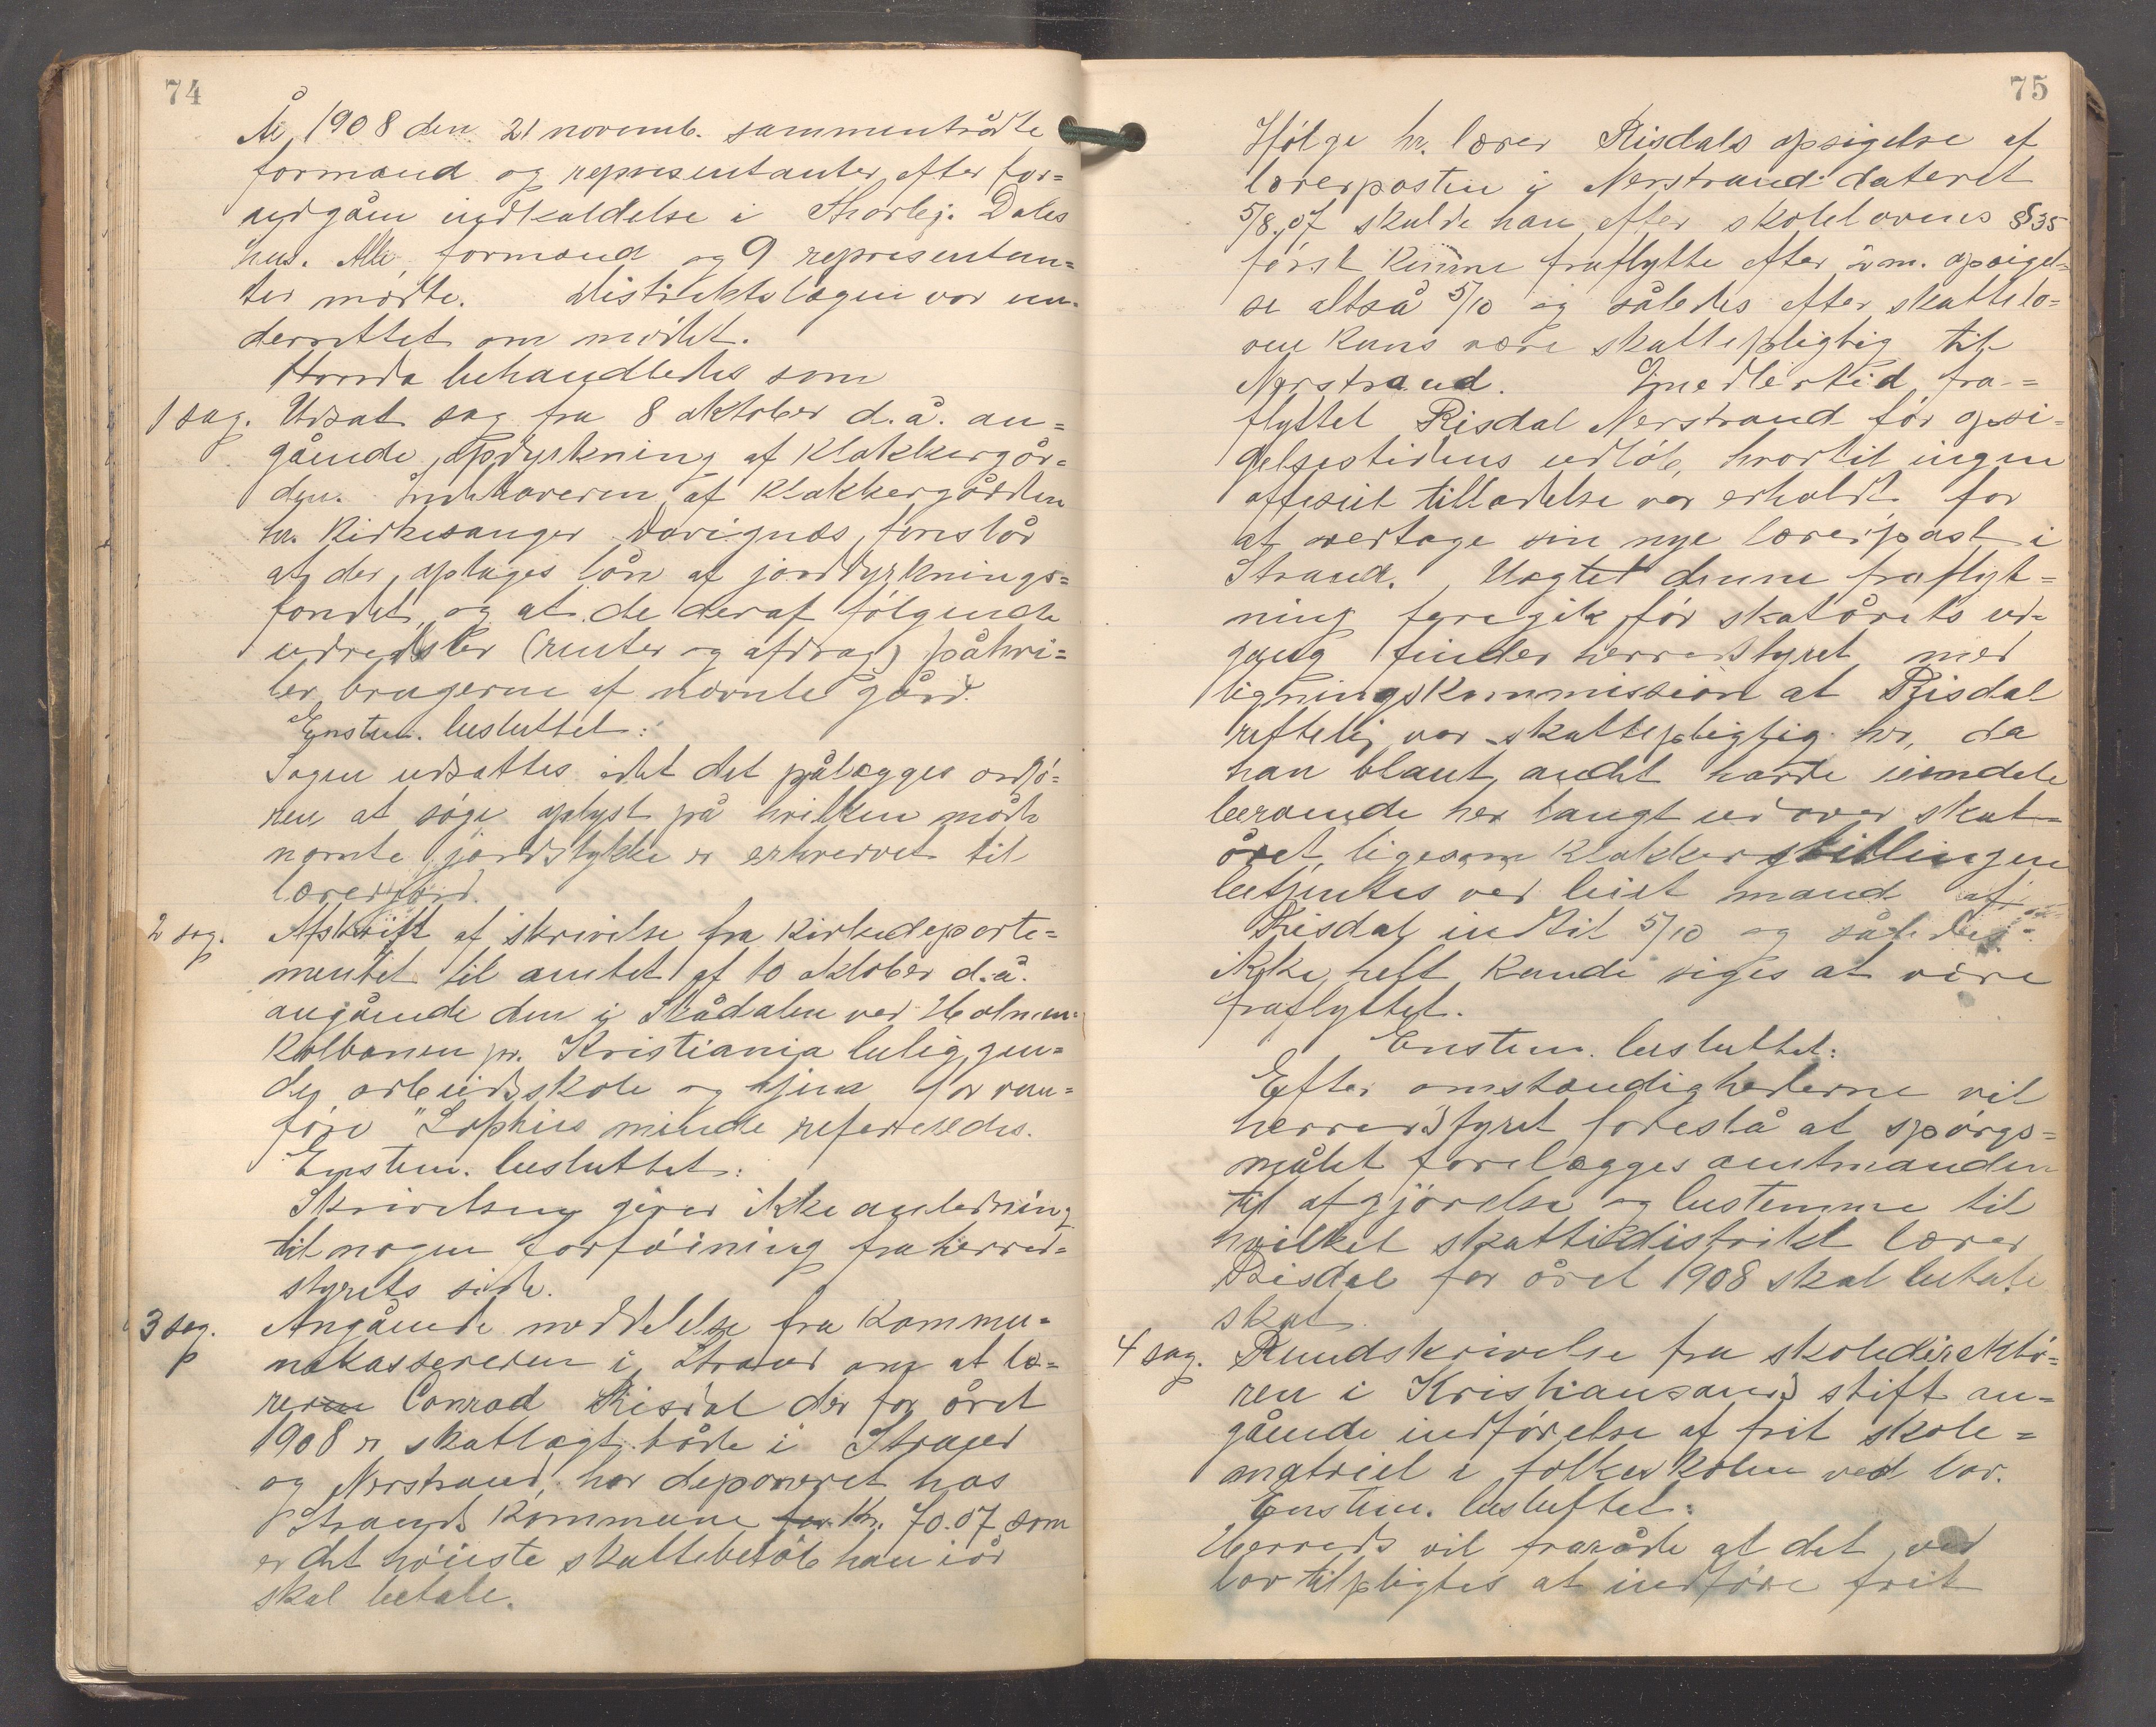 74
År 1908 den 21 novemb. sammentrådte
formænd og representanter efter for=
udgåen indkaldelse i Thorbj. Dales
hus. Alle formænd og 9 representan=
ter mødte. Distriktslægen var un=
derrettet om mødet.
Hvorda behandledes som
1 sag. Udsat sag fra 8 oktober d.å. an=
gående opdyrkning af Klokkergår=
den. Indehaveren af Klokkergården
hr. Kirkesanger foreslår
at der optages lån af jorddyrknings=
fondet og at de deraf følgende
udredsler (renter og afdrag) påhvi=
ler brugerne af nævnte gård.
Enstem. besluttet:
Sagen udsattes idet det pålægges ordfø=
ren at søge oplyst på hvilken måde
nævnte jordstykke er erhvervet til
lærerjord.
2 sag. Afskrift af skrivelse fra Kirkedeparte=
mentet til amtet af 10 oktober d.å.
angående den i Skådalen ved Holmen=
kolbanen pr. Kristiania beliggen=
de arbeidsskole og hjem for van=
føre "Sophies minde refereredes.
Enstem. besluttet:
Skrivelsen giver ikke anledning
til nogen forføining fra herred=
styrets side.
3 sag. Angående meddelelse fra Kommu=
nekassereren i Strand om at læ=
reren Conrad Risdal der for året
1908 er skatlagt både i Strand
og Nerstrand, har deponeret hos
Strands Kommune for Kr. 70.07 som
er det høieste skattebeløb han iår
skal betale.
75
Ifølge hr. lærer Risdals opsigelse af
lærerposten i Nerstrand dateret
5/8.07 skulde han efter skolelovens § 35
først kunne fraflytte efter 2 m. opsigel=
se altså 5/10 og således efter skattelo=
ven kuns være skattepligtig til
Nerstrand. Imedlertid fra=
flyttet Risdal Nerstrand før opsi=
gelsestidens udløb, hvortil ingen
offisiel tilladelse var erholdt for
at overtage sin nye lærerpost i
Strand. Uagtet denne fraflyt=
ning foregik før skatårets ud=
gang finder herredstyret med
ligningskommission at Risdal
rettelig var skattepligtig her, da
han blant andet havde eiendele
beroende her langt ud over skat=
året, ligesom Klokkerstillingen
betjentes ved leiet mand af
Risdal indtil 5/10 og således
ikke helt kunde siges at være
fraflyttet.
Enstem. besluttet:
Efter omstændighederne vil
herredstyret foreslå at spørgs=
målet forelægges amtmanden
til afgjørelse og bestemme til
hvilket skattedistrikt lærer
Risdal for året 1908 skal betale
skat.
4 sag. Rundskrivelse fra skoledirektø=
ren i Kristiansands stift an=
gående indførelse af frit skole=
matriel i folkeskolen ved lov.
Enstem. besluttet:
Herreds vil fraråde at det ved
lov tilpligtes at indføre frit